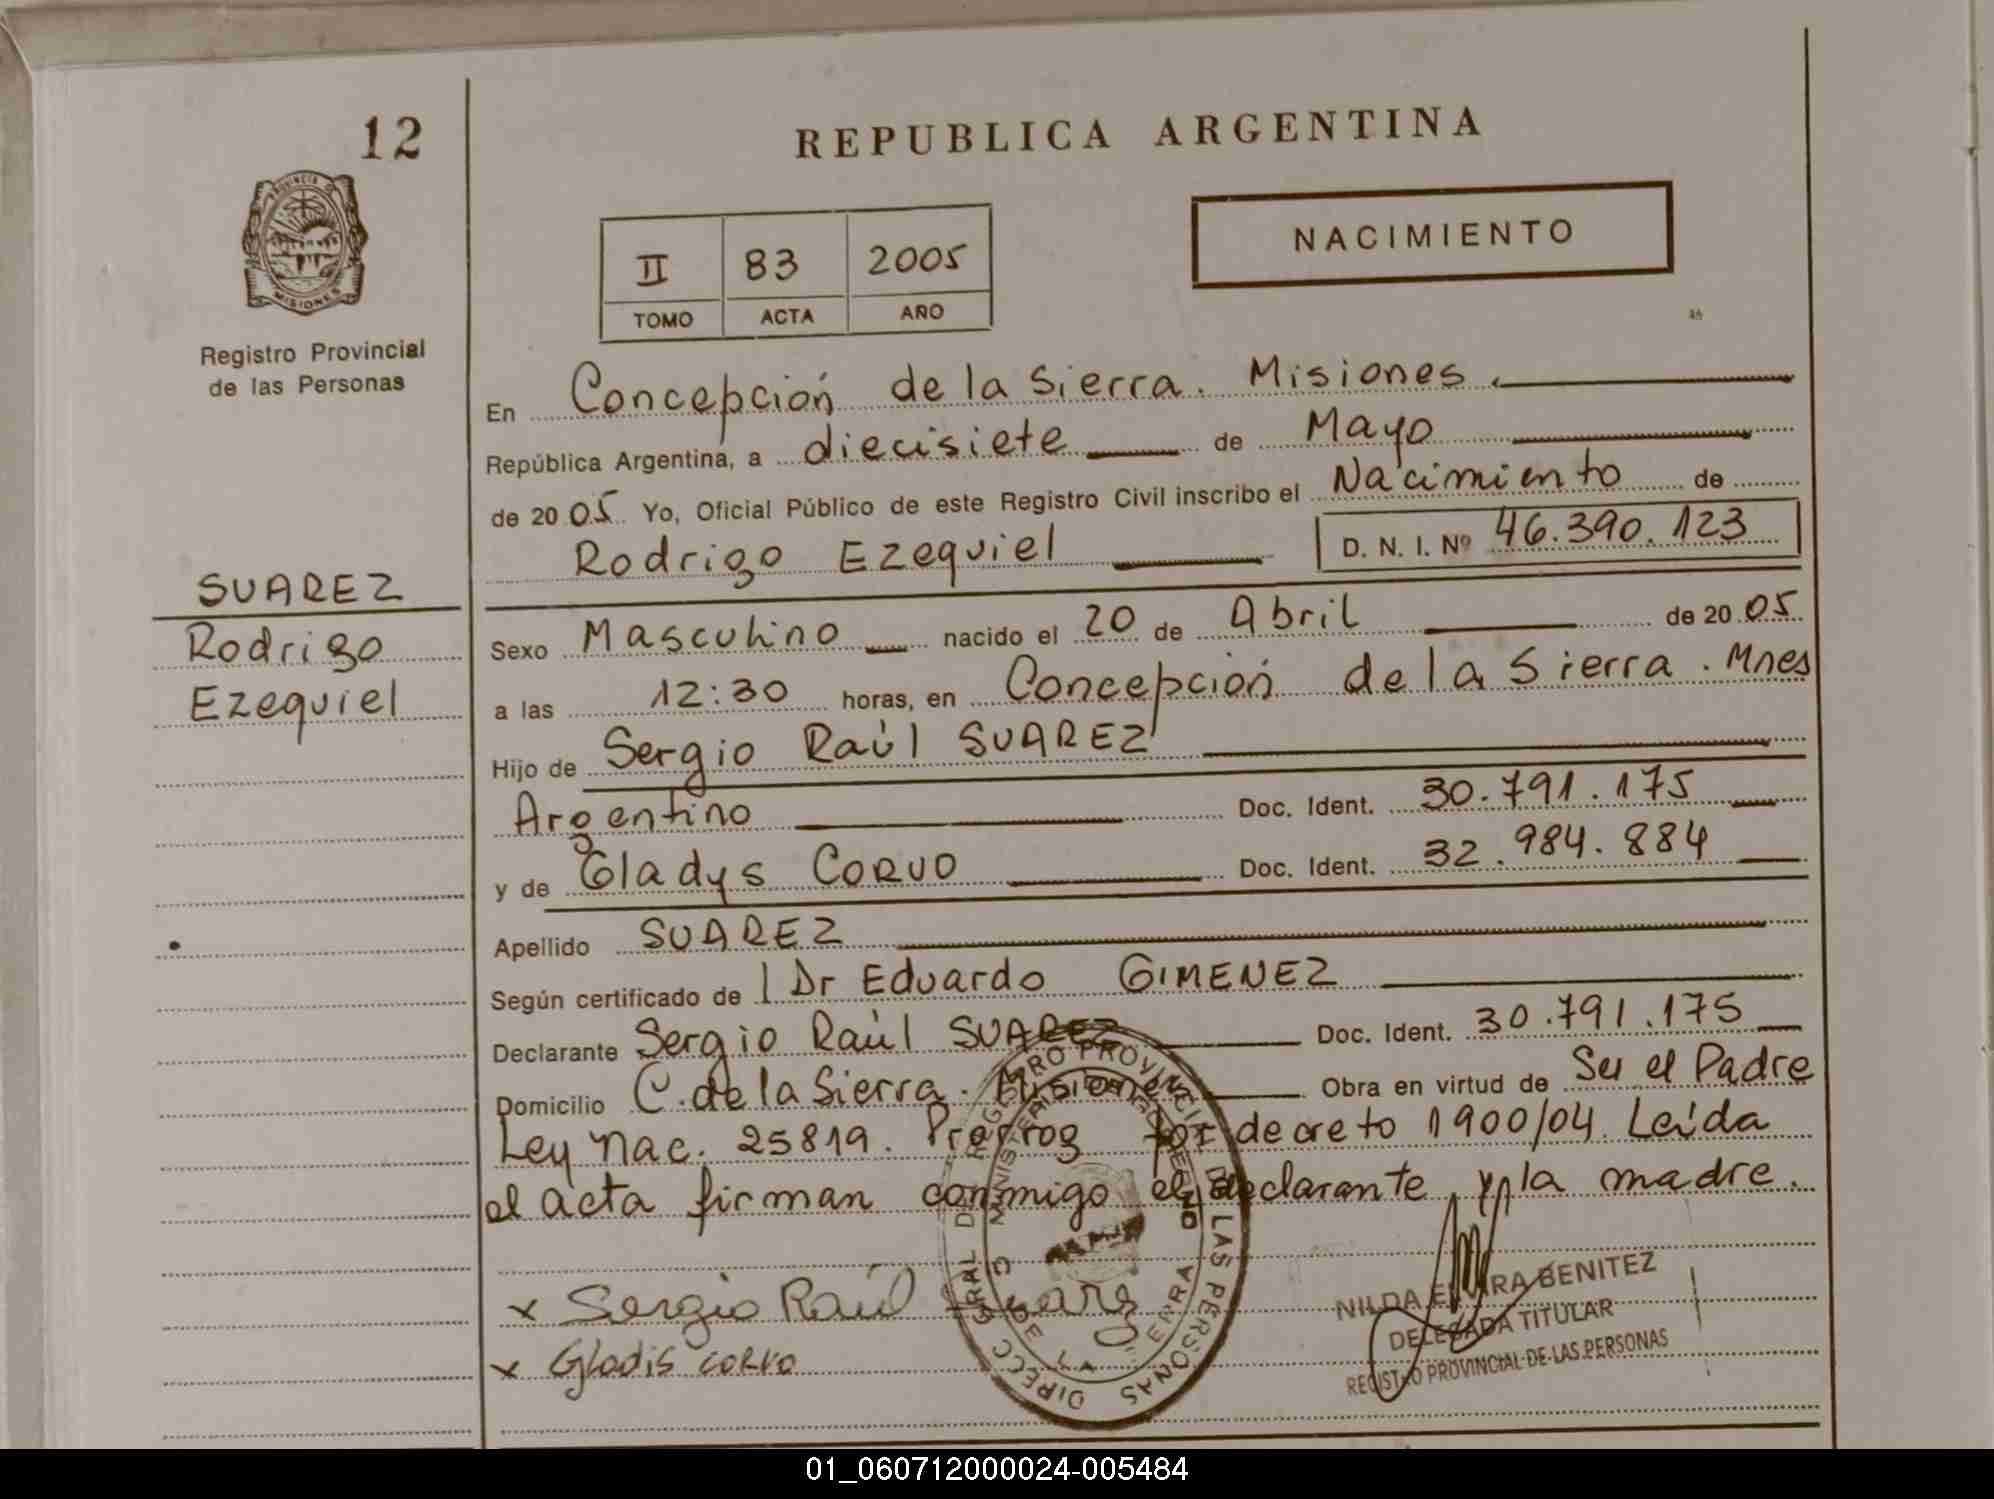 12
REPUBLICA ARGENTINA
PROVINCIA DE
MISIONES
NACIMIENTO
II 83 2005
TOMO ACTA AÑO
Registro Provincial
de las Personas
En Concepción de la Sierra. Misiones.
República Argentina, a diecisiete de Mayo
de 2005 Yo, Oficial Público de este Registro Civil inscribo el Nacimiento de
Rodrigo Ezequiel D. N. I. Nº 46.390.123
SUAREZ
Rodrigo
Ezequiel
Sexo Masculino nacido el 20 de Abril de 2005
a las 12:30 horas, en Concepción de la Sierra. Mnes
Hijo de Sergio Raúl SUAREZ
Argentino Doc. Ident. 30.791.175
y de Gladys CORVO Doc. Ident. 32.984.884
Apellido SUAREZ
Según certificado de Dr Eduardo GIMENEZ
Declarante Sergio Raúl SUAREZ Doc. Ident. 30.791.175
Domicilio C. de la Sierra. Misiones Obra en virtud de Ser el Padre
Ley Nac. 25819. Prorrog por decreto 1900/04. Leída
el acta firman conmigo el declarante y la madre.
x Sergio Raúl Suarez
x Gladis corvo
DIRECC GRAL DEL REGISTRO PROVINCIAL DE LAS PERSONAS
NILDA ELVIRA BENITEZ
DELEGADA TITULAR
REGISTRO PROVINCIAL DE LAS PERSONAS
01_060712000024-005484